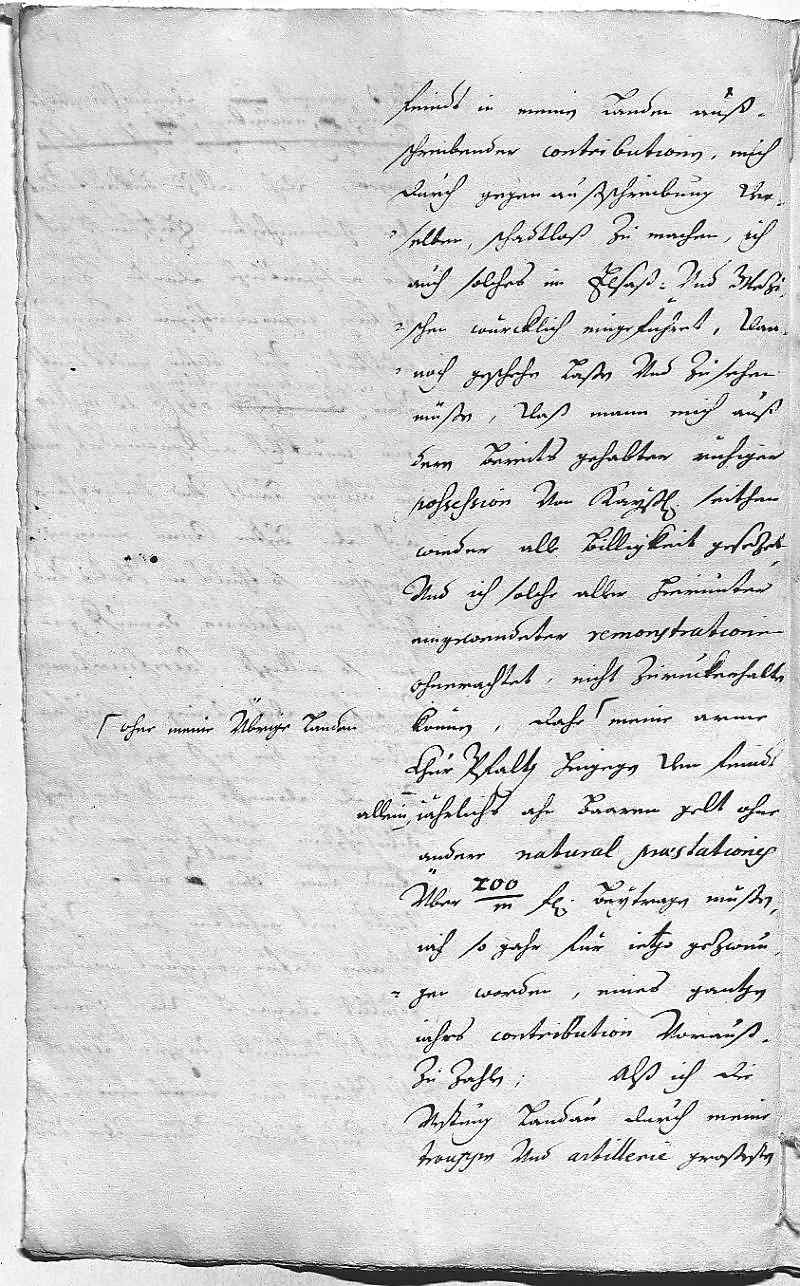 feindt in meine Landen auß-
schreibender contributionen, mich
durch gegenaußschreibung der-
selben, schadtloß zu machen, ich
auch solches im Elsaß- und Metzi-
schen würcklich eingeführet, dan-
noch geschehen laßen und zusehen
müßen, daß mann mich auß
dem bereits gehabter ruhiger
possession von Kayßl. seithen
wieder alle billigkeit gesetzet
und ich solche aller hierunter
eingewendeter remonstrationen
ohnerachtet, nicht zuruckerhalten
können, dahe ⌈ meine arme
⌈ ohne meine übrige Landen
Chur Pfaltz hingegen dem feindt
allein, jährlichs ahn baarem gelt ohne
andere natural præstationes
über 200/m fl. beytragen müßen,
auch so gahr für ietzo gezwun-
gen worden, eines gantzen
iahrs contribution vorauß-
zu zahlen; Alß ich die
Vestung Landau durch meine
trouppen und artillerie